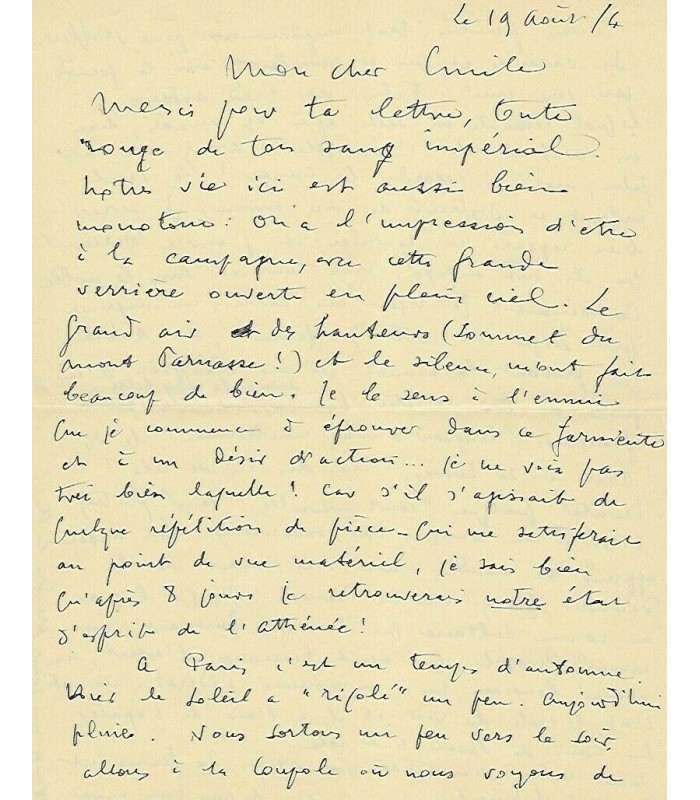 Le 19 Août /4
Mon cher Emile
Merci pour ta lettre, toute
rouge de ton sang impérial.
Notre vie ici est aussi bien
monotone. On a l'impression d'être
à la campagne, avec cette grande
verrière ouverte en plein ciel. Le
grand air et des hauteurs (sommet du
mont Parnasse!) et le silence, m'ont fait
beaucoup de bien. Je le sens à l'ennui
que je commence à éprouver dans ce farniente
et à un désir d'action... je ne vois pas
très bien laquelle! Car s'il s'agissait de
quelque répétition de pièce - qui me satisferait
au point de vue matériel, je sais bien
qu'après 8 jours je retrouverais notre état
d'esprit de l'Athénée!
A Paris c'est un temps d'automne.
Hier le soleil a "rigolé" un peu. Aujourd'hui
pluies. Nous sortons un peu vers le soir,
allons à la Coupole où nous voyons de